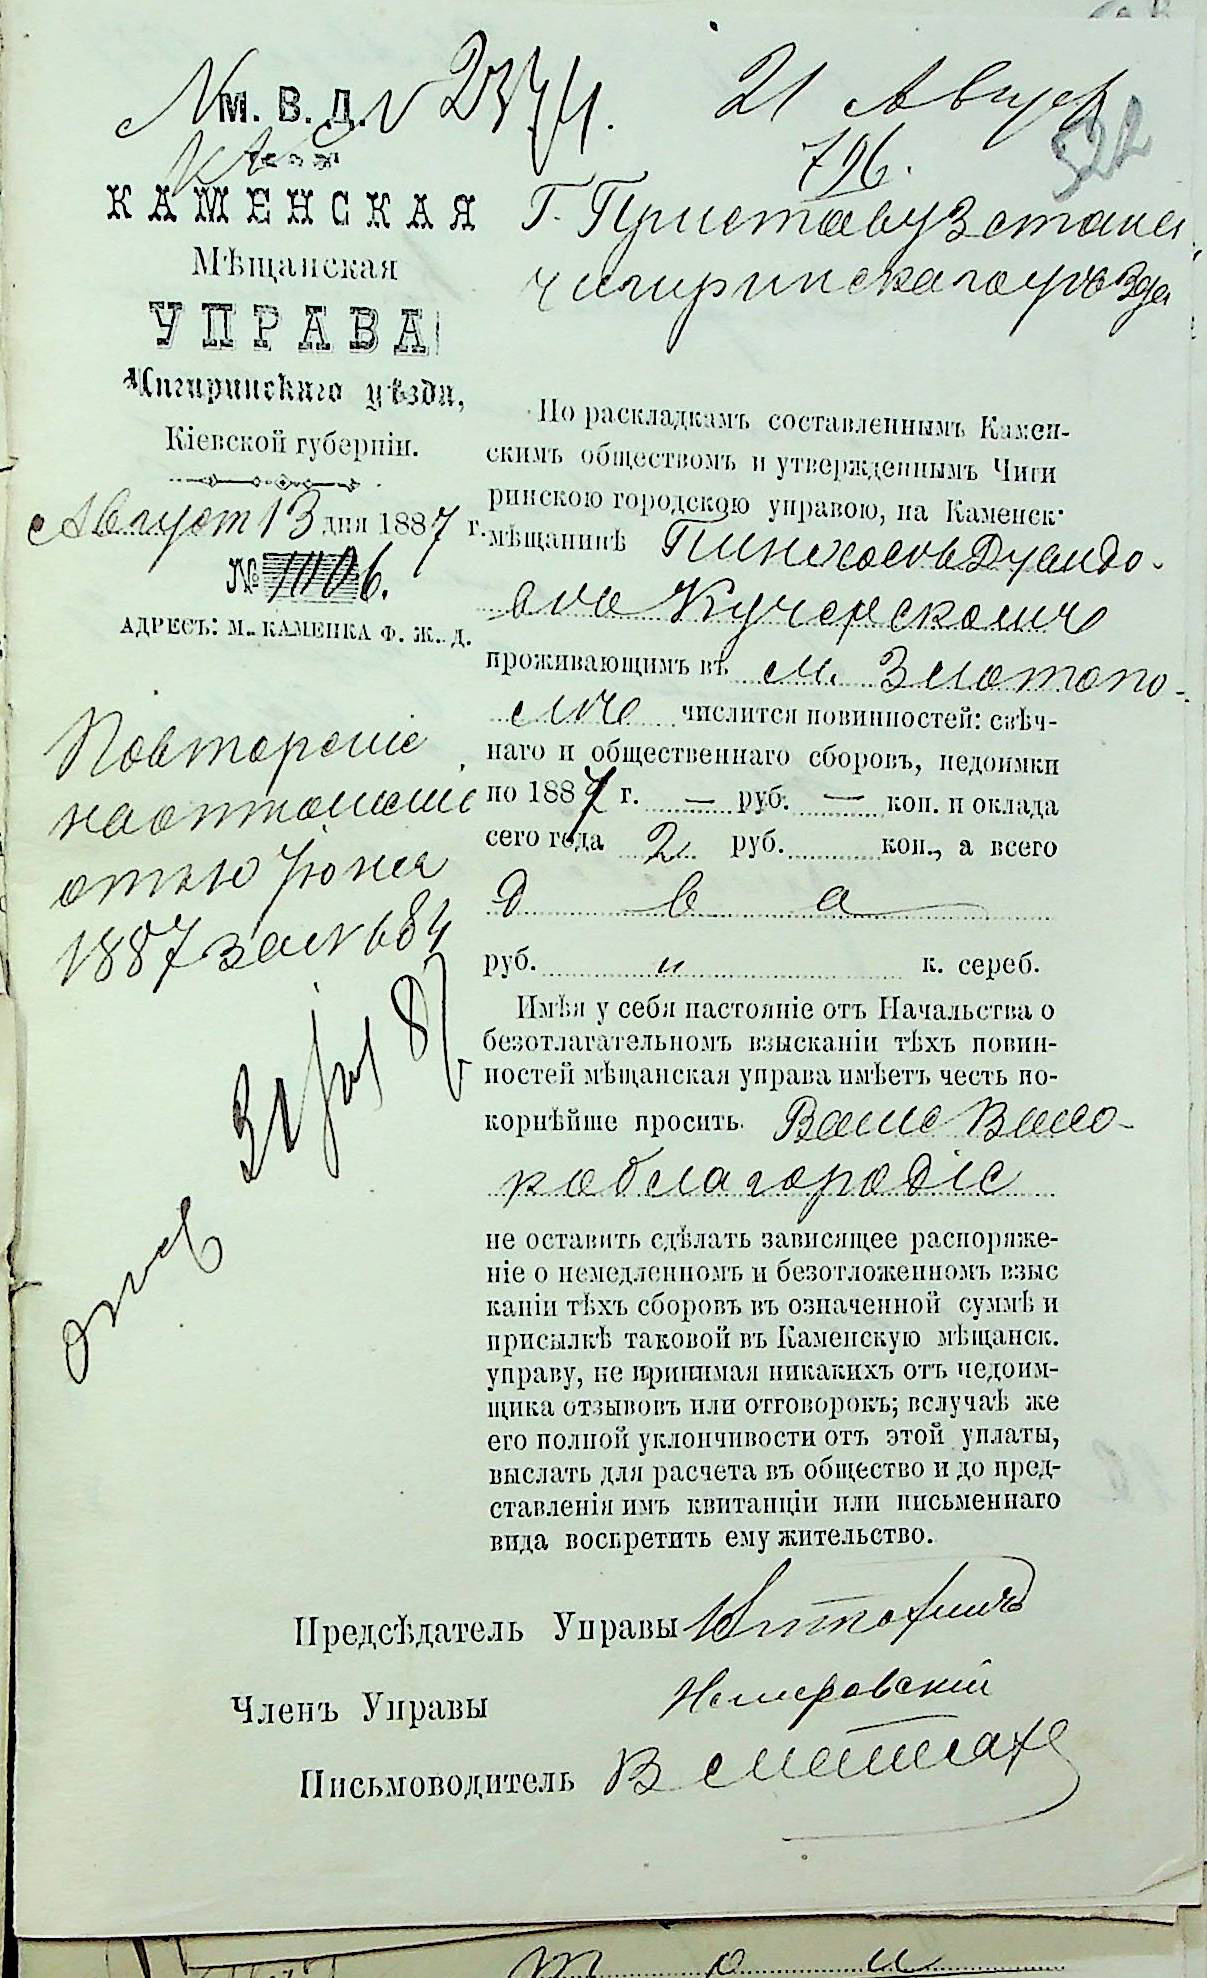 М. В. Д.
КАМЕНСКАЯ
Мѣщанская
УПРАВА
Чигиринскаго уѣзда,
Кіевской губерніи.
Август 13 дня 1887 г.
№ 1106.
АДРЕСЪ: М. КАМЕНКА Ф. Ж. Д.
Повтореніе
на отношеніе
отъ 10 Іюня
1887 за № 684
21 Август
796.
522
Г. Приставу 3 стана
Чигиринскаго уѣзда
По раскладкамъ составленнымъ Камен-
скимъ обществомъ и утвержденнымъ Чиги
ринскою городскою управою, на Каменск.
мѣщанинѣ Пинхосѣ
Кучерскомъ
проживающимъ въ м. Златопо-
лѣ числится повинностей: свѣч-
наго и общественнаго сборовъ, недоимки
по 1887 г. — руб. — коп. и оклада
сего года 2 руб. коп., а всего
два
руб. и к. сереб.
Имѣя у себя настояніе отъ Начальства о
безотлагательномъ взысканіи тѣхъ повин-
ностей мѣщанская управа имѣетъ честь по-
корнѣйше просить Ваше Высо-
коблагородіе
не оставить сдѣлать зависящее распоряже-
ніе о немедленномъ и безотложенномъ взыс
каніи тѣхъ сборовъ въ означенной суммѣ и
присылкѣ таковой въ Каменскую мѣщанск.
управу, не принимая никакихъ отъ недоим-
щика отзывовъ или отговорокъ; вслучаѣ же
его полной уклончивости отъ этой уплаты,
выслать для расчета въ общество и до пред-
ставленія имъ квитанціи или письменнаго
вида воспретить ему жительство.
Предсѣдатель Управы
Членъ Управы Немировскій
Письмоводитель В